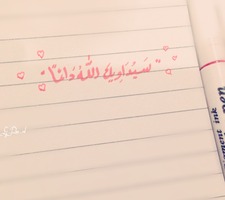 "سَيُدَاوِيك اللّٰهُ دَائمًا"
ment ink
pen